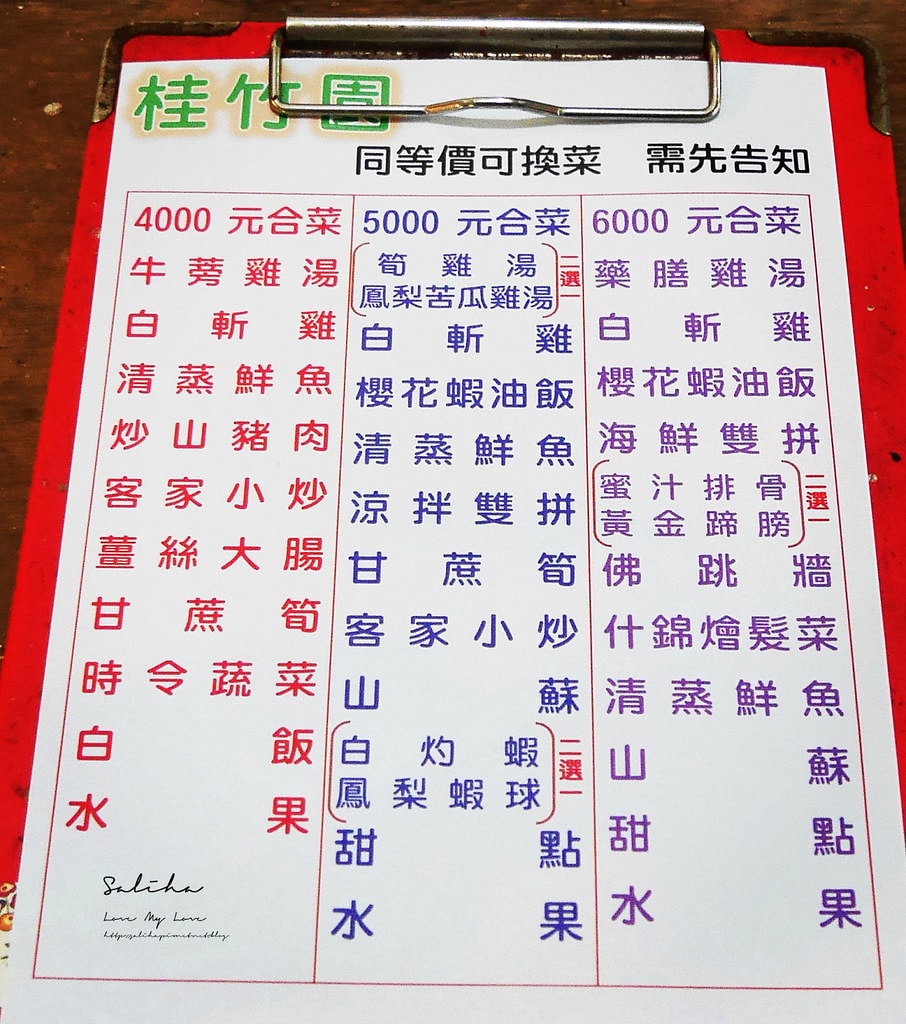 桂竹園
同等價可換菜 需先告知
4000 元合菜
牛蒡雞湯
白斬雞
清蒸鮮魚
炒山豬肉
客家小炒
薑絲大腸
甘蔗筍
時令蔬菜
白飯
水果
5000 元合菜
筍雞湯
鳳梨苦瓜雞湯
二選一
白斬雞
櫻花蝦油飯
清蒸鮮魚
涼拌雙拼
甘蔗筍
客家小炒
山蘇
白灼蝦
鳳梨蝦球
二選一
甜點
水果
6000 元合菜
藥膳雞湯
白斬雞
櫻花蝦油飯
海鮮雙拼
蜜汁排骨
黃金蹄膀
二選一
佛跳牆
什錦燴髮菜
清蒸鮮魚
山蘇
甜點
水果
Saliha
Love My Love